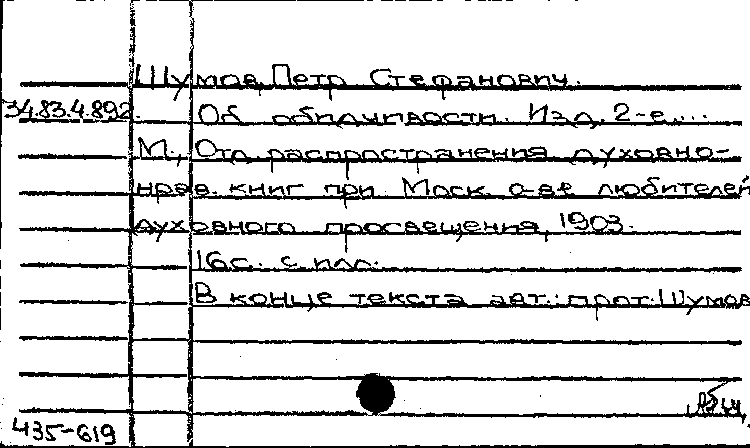 Шумов, Петр Стефанович.
34.83.4.892. Об обидчивости. Изд. 2-е, ...
М., Отд распространения духовно-
нрав. книг при Моск. о-ве любителей
духовного просвещения, 1903.
16с. с илл.
В конце текста авт.: прот. Шумов
435-619